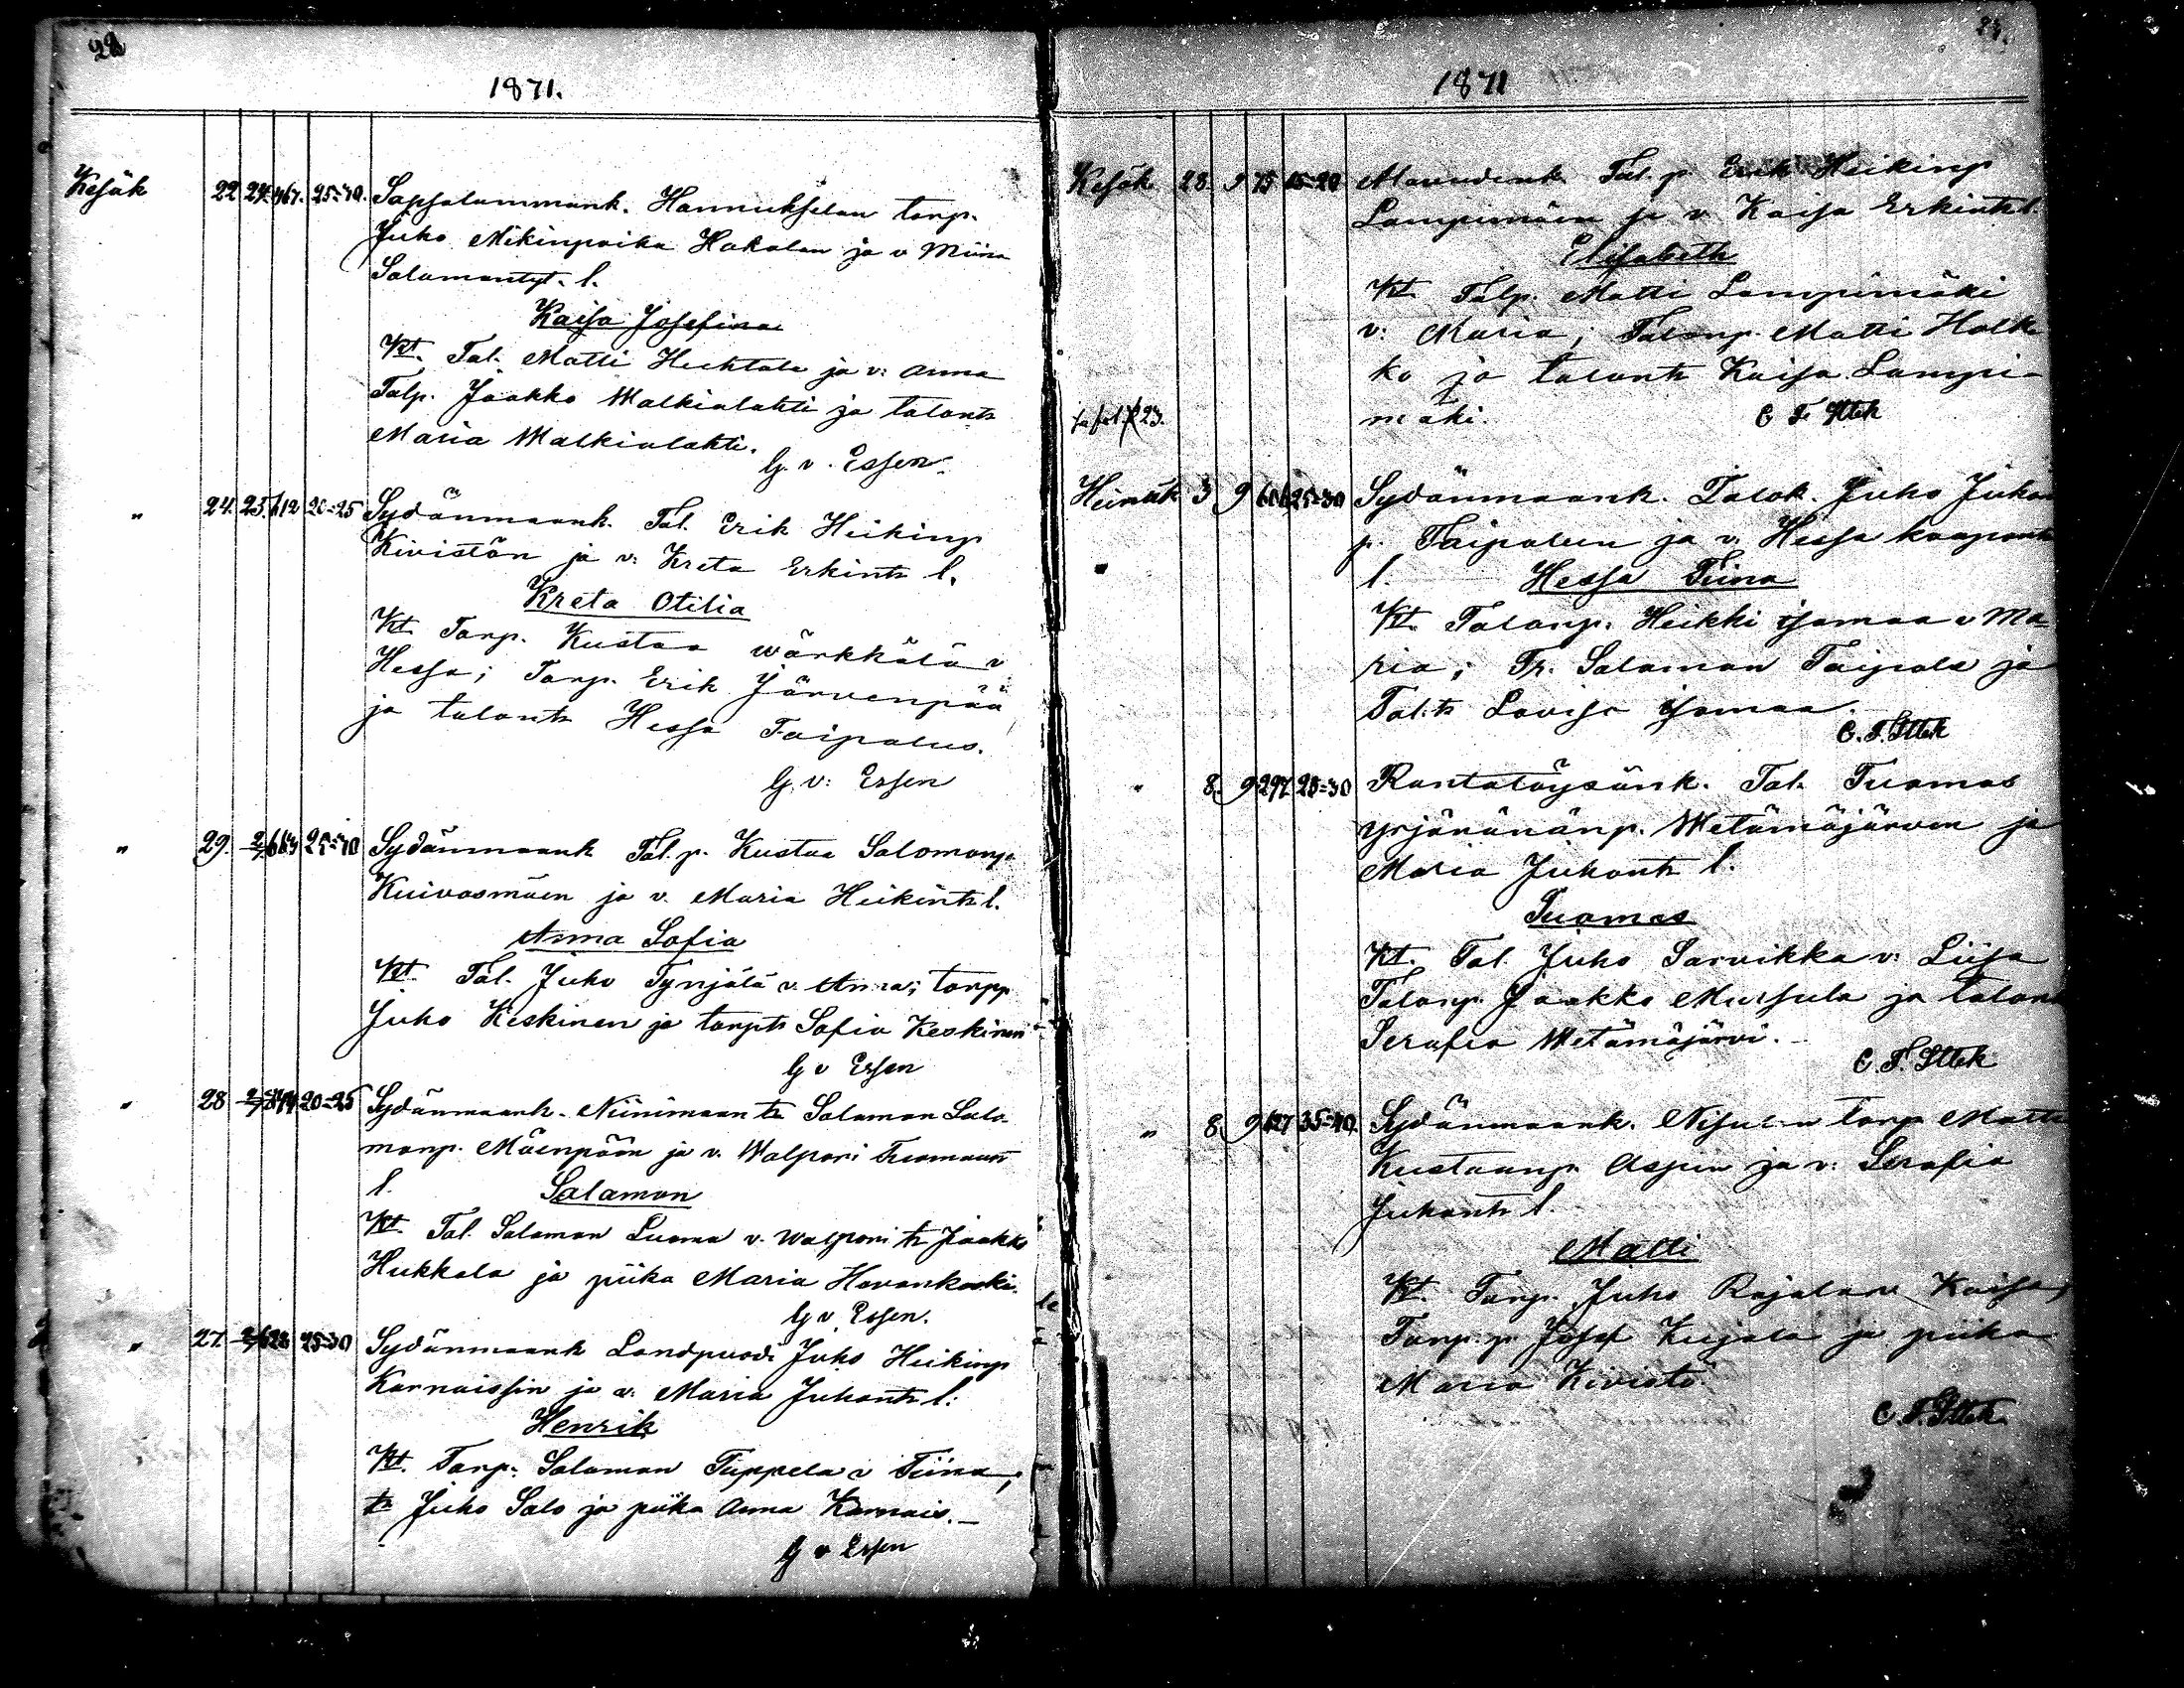 1871.
Kesäk 22 24. 467. 25=30. Sapsalammank. Hannukselan torp.
Juho Mikinpoika Hakalan ja v Miina
Salamontyt. l.
Kaisa Josefina
Kt. Tal. Matti Huhtala ja v: Anna
Talp. Jaakko Walkialahti ja talonts
Maria Walkialahti.
G. v. Essen.
" 24. 25. 612 20=25 Sydänmaank. Tal. Erik Heikinp
Kivistön ja v: Kreta Erkints l.
Kreta Otilia
Kt. Torp. Kustaa Wärkkälä v
Hessa; Torp. Erik Järvenpää
ja talonts Hessa Taipalus.
G. v: Essen
" 29. 25=30 Sydänmaank Tal. p. Kustaa Salomonp.
Kuivasmäen ja v. Maria Heikints l.
Anna Sofia
Kt. Tal. Juho Tynjälä v. Anna; torpp
Juho Keskinen ja torpts Sofia Keskinen
G v Essen
" 28 20=25 Sydänmaank. Niinimaan ts Salamon Salo-
monp. Mäenpään ja v. Walpori Tuomaants
l. Salamon
Kt. Tal. Salamon Luoma v. Walpori ts Jaakko
Hukkala ja piika Maria Havankoski.
G v. Essen.
" 27. 628 25=30 Sydänmaank Landpuodi Juho Heikinp
Karnaissin ja v. Maria Juhonts l.
Henrik
Kt. Torp. Salamon Tuppela v Tiina,
ts Juho Salo ja piika Anna Karnais.
G v Essen
1871
Kesäk 28. 9 75 15=20 Tal. p. Erik Heikinp
Lampimäen ja v Kaisa Erkints l.
Elisabeth
Kt. Talp. Matti Lampimäki
v: Maria; Talonp. Matti Holk
ko ja talonts Kaisa Lampi-
mäki.
Heinäk 3 9 606 25=30 Sydänmaank. Talok. Juho Juhon
p. Taipaleen ja v. Hessa kaaponts
l. Hessa Tiina
Kt. Talonp. Heikki isomaa v Ma-
ria; Tr. Salaman Taipale ja
Tal.ts Lovisa isomaa.
" 8. 9 297 25=30 Rantatöysänk. Tal. Tuomas
yrjänänänp. Wetämäjärven ja
Maria Juhonts l.
Tuomas
Kt. Tal. Juho Sarvikka v: Liisa
Talonp. Jaakko Mursula ja talon
Serafia Wetämäjärvi.
" 8. 9 627 35=40. Sydänmaank. Nisulan torp Matti
Kustaanp. Aspin ja v: Serafia
Juhonts l.
Matti
Kt. Torp. Juho Rajala v Kaisa,
Torp. p. Josef Kujala ja piika
Maria Kivistö